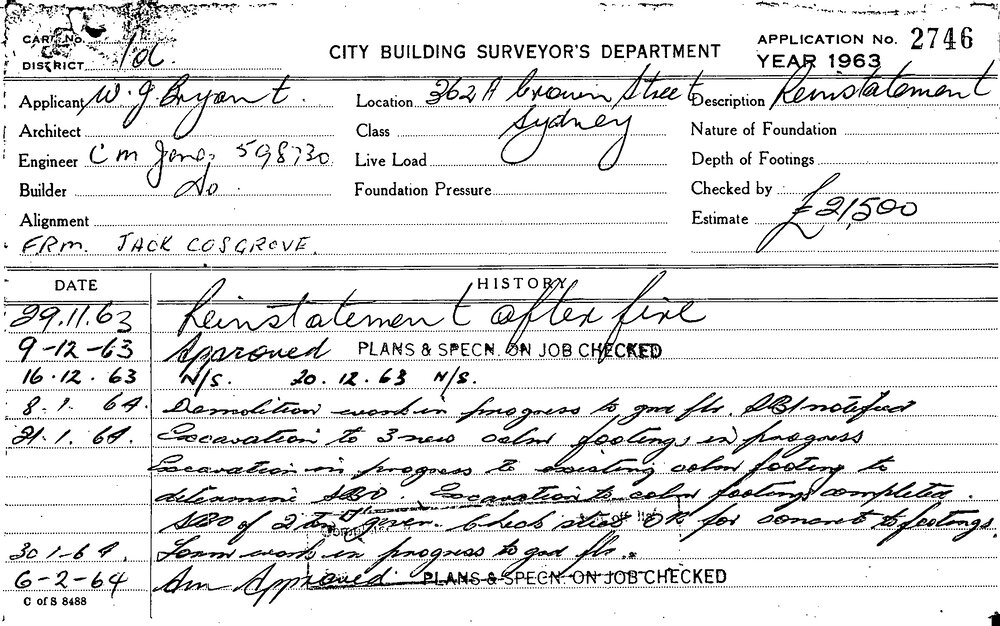 CARD No.
DISTRICT
CITY BUILDING SURVEYOR'S DEPARTMENT
APPLICATION No. 2746
YEAR 1963
Applicant W. J. Bryant.
Location 362A Crown Street Sydney
Description Reinstatement
Architect
Class
Nature of Foundation
Engineer C M Jones 598730
Live Load
Depth of Footings
Builder Do.
Foundation Pressure
Checked by
Alignment
Estimate £21,500
FRM. JACK COSGROVE.
DATE HISTORY
29.11.63 Reinstatement after fire
9-12-63 Approved PLANS & SPECN. ON JOB CHECKED
16.12.63 N/S. 20.12.63 N/S.
8.1.64. Demolition work in progress to grd flr. SBI notified
21.1.64. Excavation to 3 new colm footings in progress
Excavation in progress to existing colm footing to
determine SBO. Excavation to colm footings completed.
SBO of 2 given. Check steel OK for concrete to footings.
30.1.64. Form work in progress to grd flr.
6-2-64 Am Approved PLANS & SPECN. ON JOB CHECKED
C of S 8488